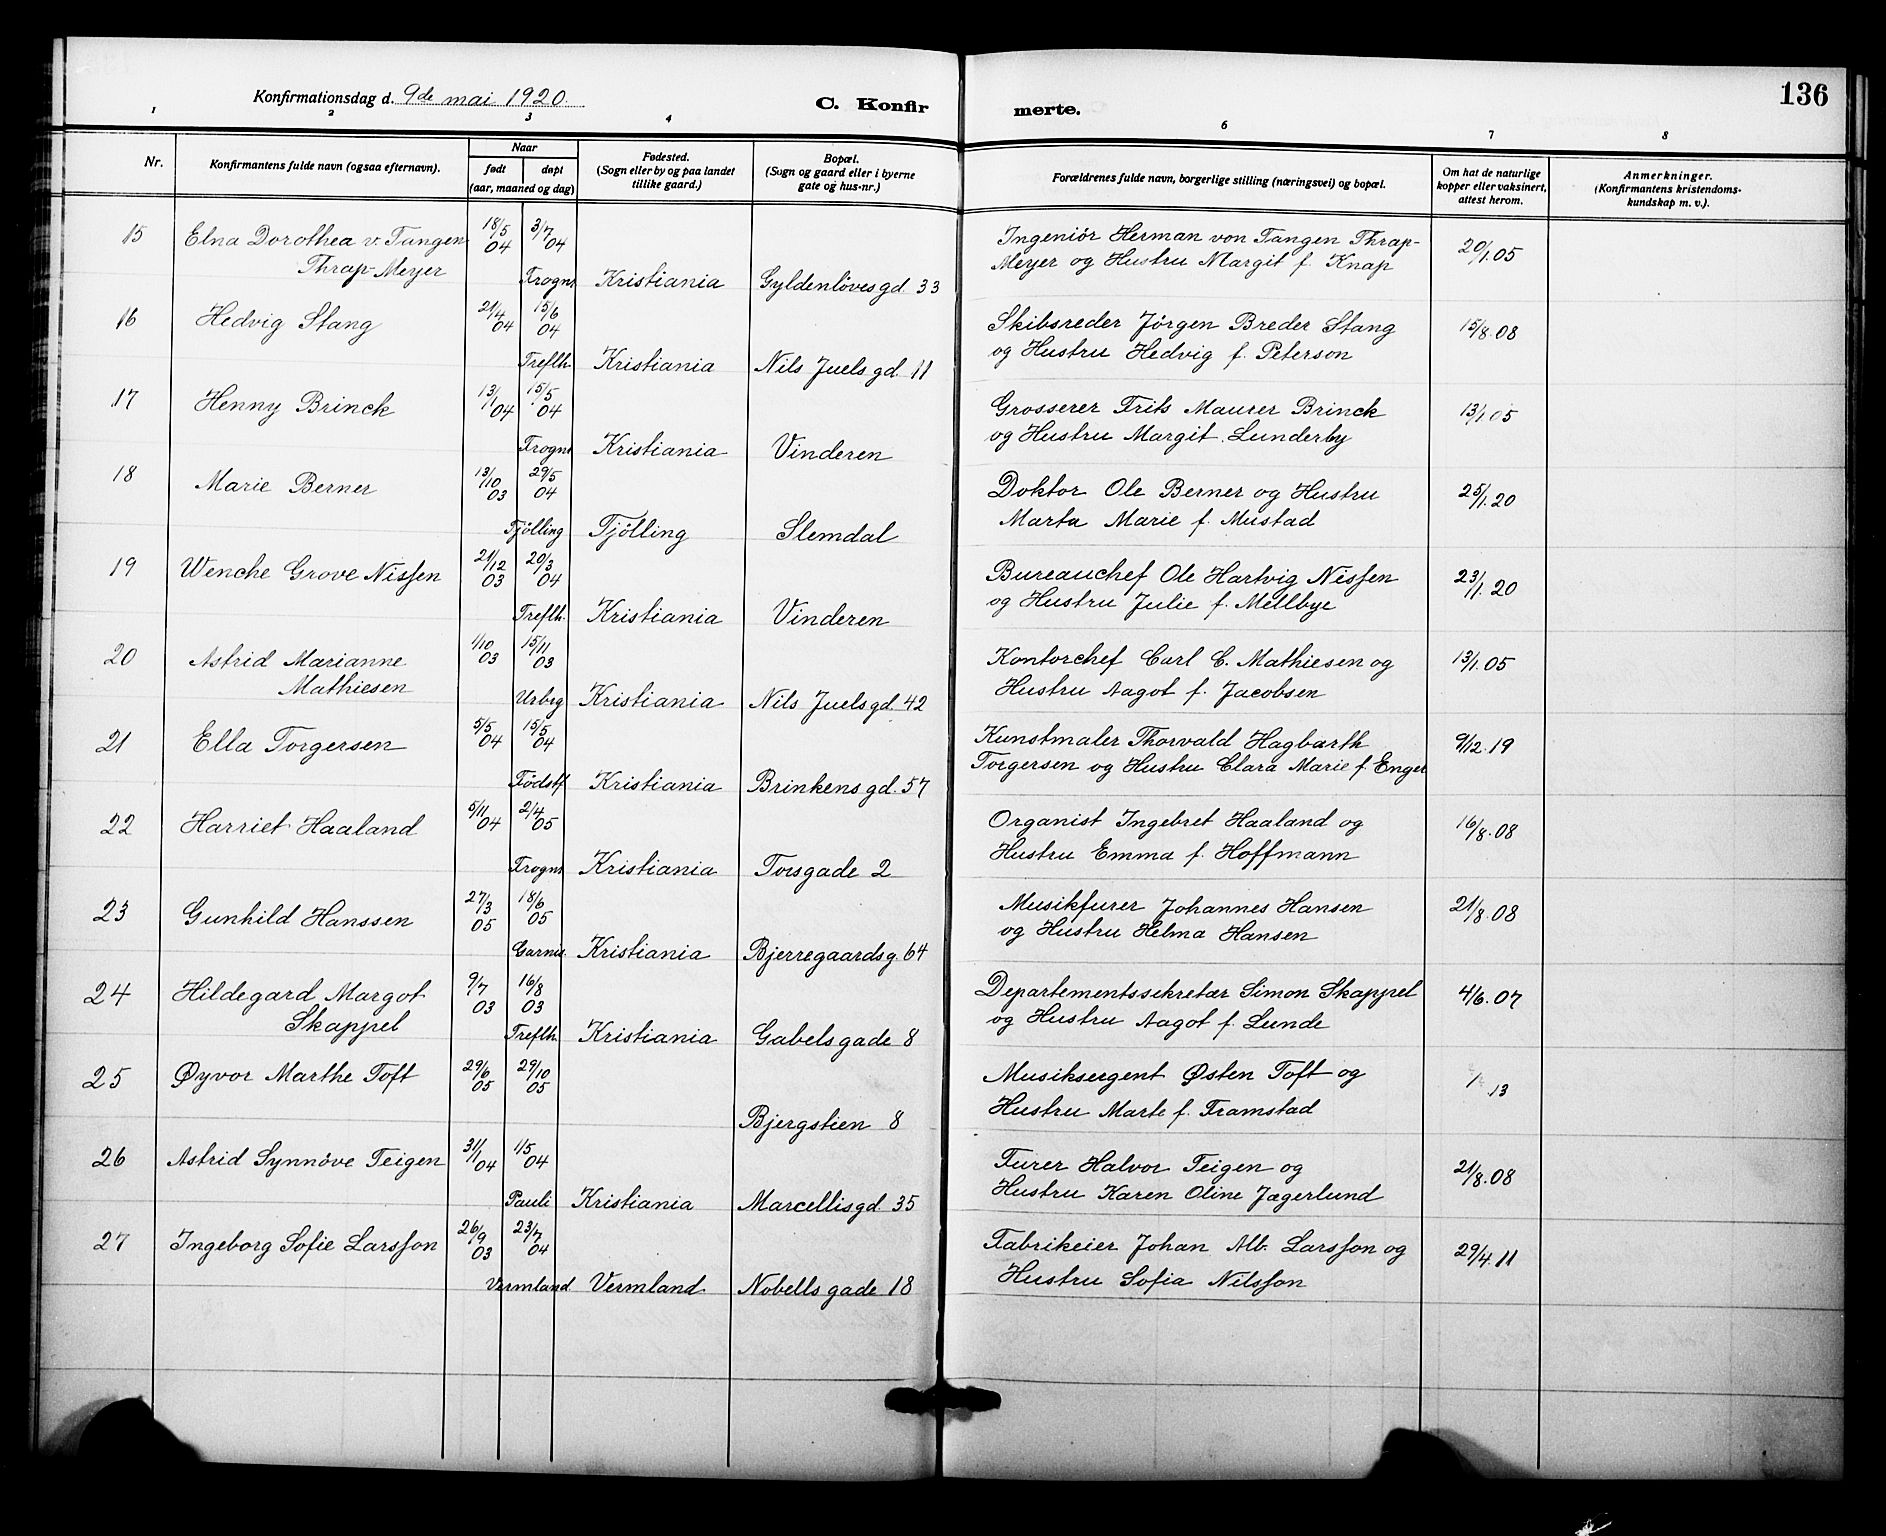 136
Konfirmationsdag d. 9de mai 1920.
C. Konfir merte.
1 2 3 4 6 7 8
Nr.
Konfirmantens fulde navn (ogsaa efternavn).
Naar
født døpt
(aar, maaned og dag)
Fødested.
(Sogn eller by og paa landet
tillike gaard.)
Bopæl.
(Sogn og gaard eller i byerne
gate og hus-nr.)
Forældrenes fulde navn, borgerlige stilling (næringsvei) og bopæl.
Om hat de naturlige
kopper eller vaksinert,
attest herom.
Anmerkninger.
(Konfirmantens kristendoms-
kundskap m. v.).
15 Elna Dorothea v. Tangen 18/5 04 3/7 04 Ingeniör Herman von Tangen Thrap- 20/1.05
Thrap-Meyer Frogns Kristiania Gyldenløvesgd. 33 Meyer og Hustru Margit f. Knap
16 Hedvig Stang 21/4 04 15/6 04 Skibsreder Jörgen Breder Stang 15/8.08
Treflh. Kristiania Nils Juels gd. 11 og Hustru Hedvig f. Peterson
17 Henny Brinck 13/1 04 15/5 04 Grosserer Frits Maurer Brinck 13/1.05
Frogns Kristiania Vinderen og Hustru Margit Lunderby
18 Marie Berner 13/10 03 29/5 04 Doktor Ole Berner og Hustru 25/1.20
Tjölling Tjölling Slemdal Marta Marie f. Mustad
19 Wenche Grove Nissen 21/12 03 20/3 04 Bureauchef Ole Hartvig Nissen 23/1.20
Treflh. Kristiania Vinderen og Hustru Julie f. Mellbye
20 Astrid Marianne 1/10 03 15/11 03 Kontorchef Carl C. Mathiesen og 13/1.05
Mathiesen Urbrg Kristiania Nils Juels gd. 42 Hustru Aagot f. Jacobsen
21 Ella Torgersen 5/5 04 15/5 04 Kunstmaler Thorvald Hagbarth 9/12.19
Fødstf. Kristiania Brinkens gd. 57 Torgersen og Hustru Clara Marie f. Enger
22 Harriet Haaland 5/11 04 2/4 05 Organist Ingebret Haaland og 16/8.08
Frogns Kristiania Torsgade 2 Hustru Emma f. Hoffmann
23 Gunhild Hanssen 27/3 05 18/6 05 Musikfurer Johannes Hansen 21/8.08
Garnis. Kristiania Bjerregaardsg. 64 og Hustru Helma Hansen
24 Hildegard Margot 9/7 03 16/8 03 Departementssekretær Simon Skappel 4/6.07
Skappel Treflh. Kristiania Gabels gade 8 og Hustru Aagot f. Lunde
25 Øyvor Marthe Toft 29/6 05 29/10 05 Musiksergent Østen Toft og / 13
Bjergstien 8 Hustru Marte f. Framstad
26 Astrid Synnöve Teigen 31/1 04 1/5 04 Furer Halvor Teigen og 21/8.08
Pauli Kristiania Marcellisgd. 35 Hustru Karen Oline Jægerlund
27 Ingeborg Sofie Larsson 26/9 03 23/7 04 Fabrikeier Johan Alb. Larsson og 29/4.11
Vermland Vermland Nobells gade 18 Hustru Sofia Nilsson